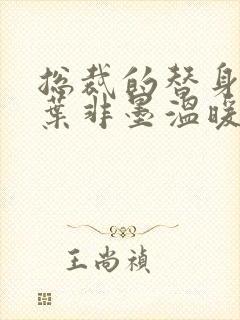 总裁的替身
葉非墨温暖
王尚禎